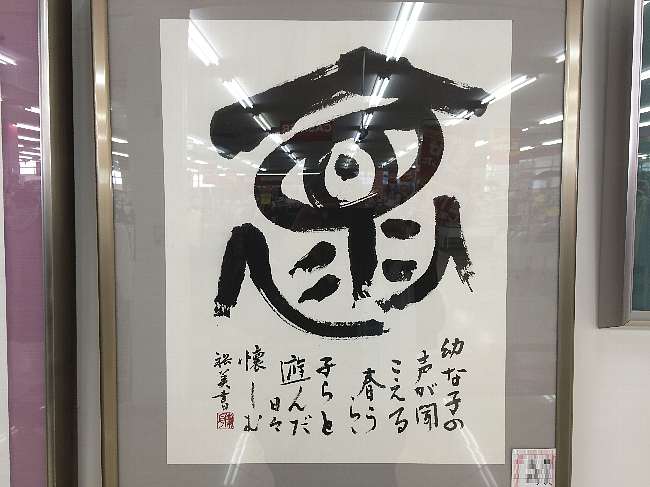 幼な子の
声が聞
こえる
春う
らら
子らと
遊んだ
日々
懐しむ
美書